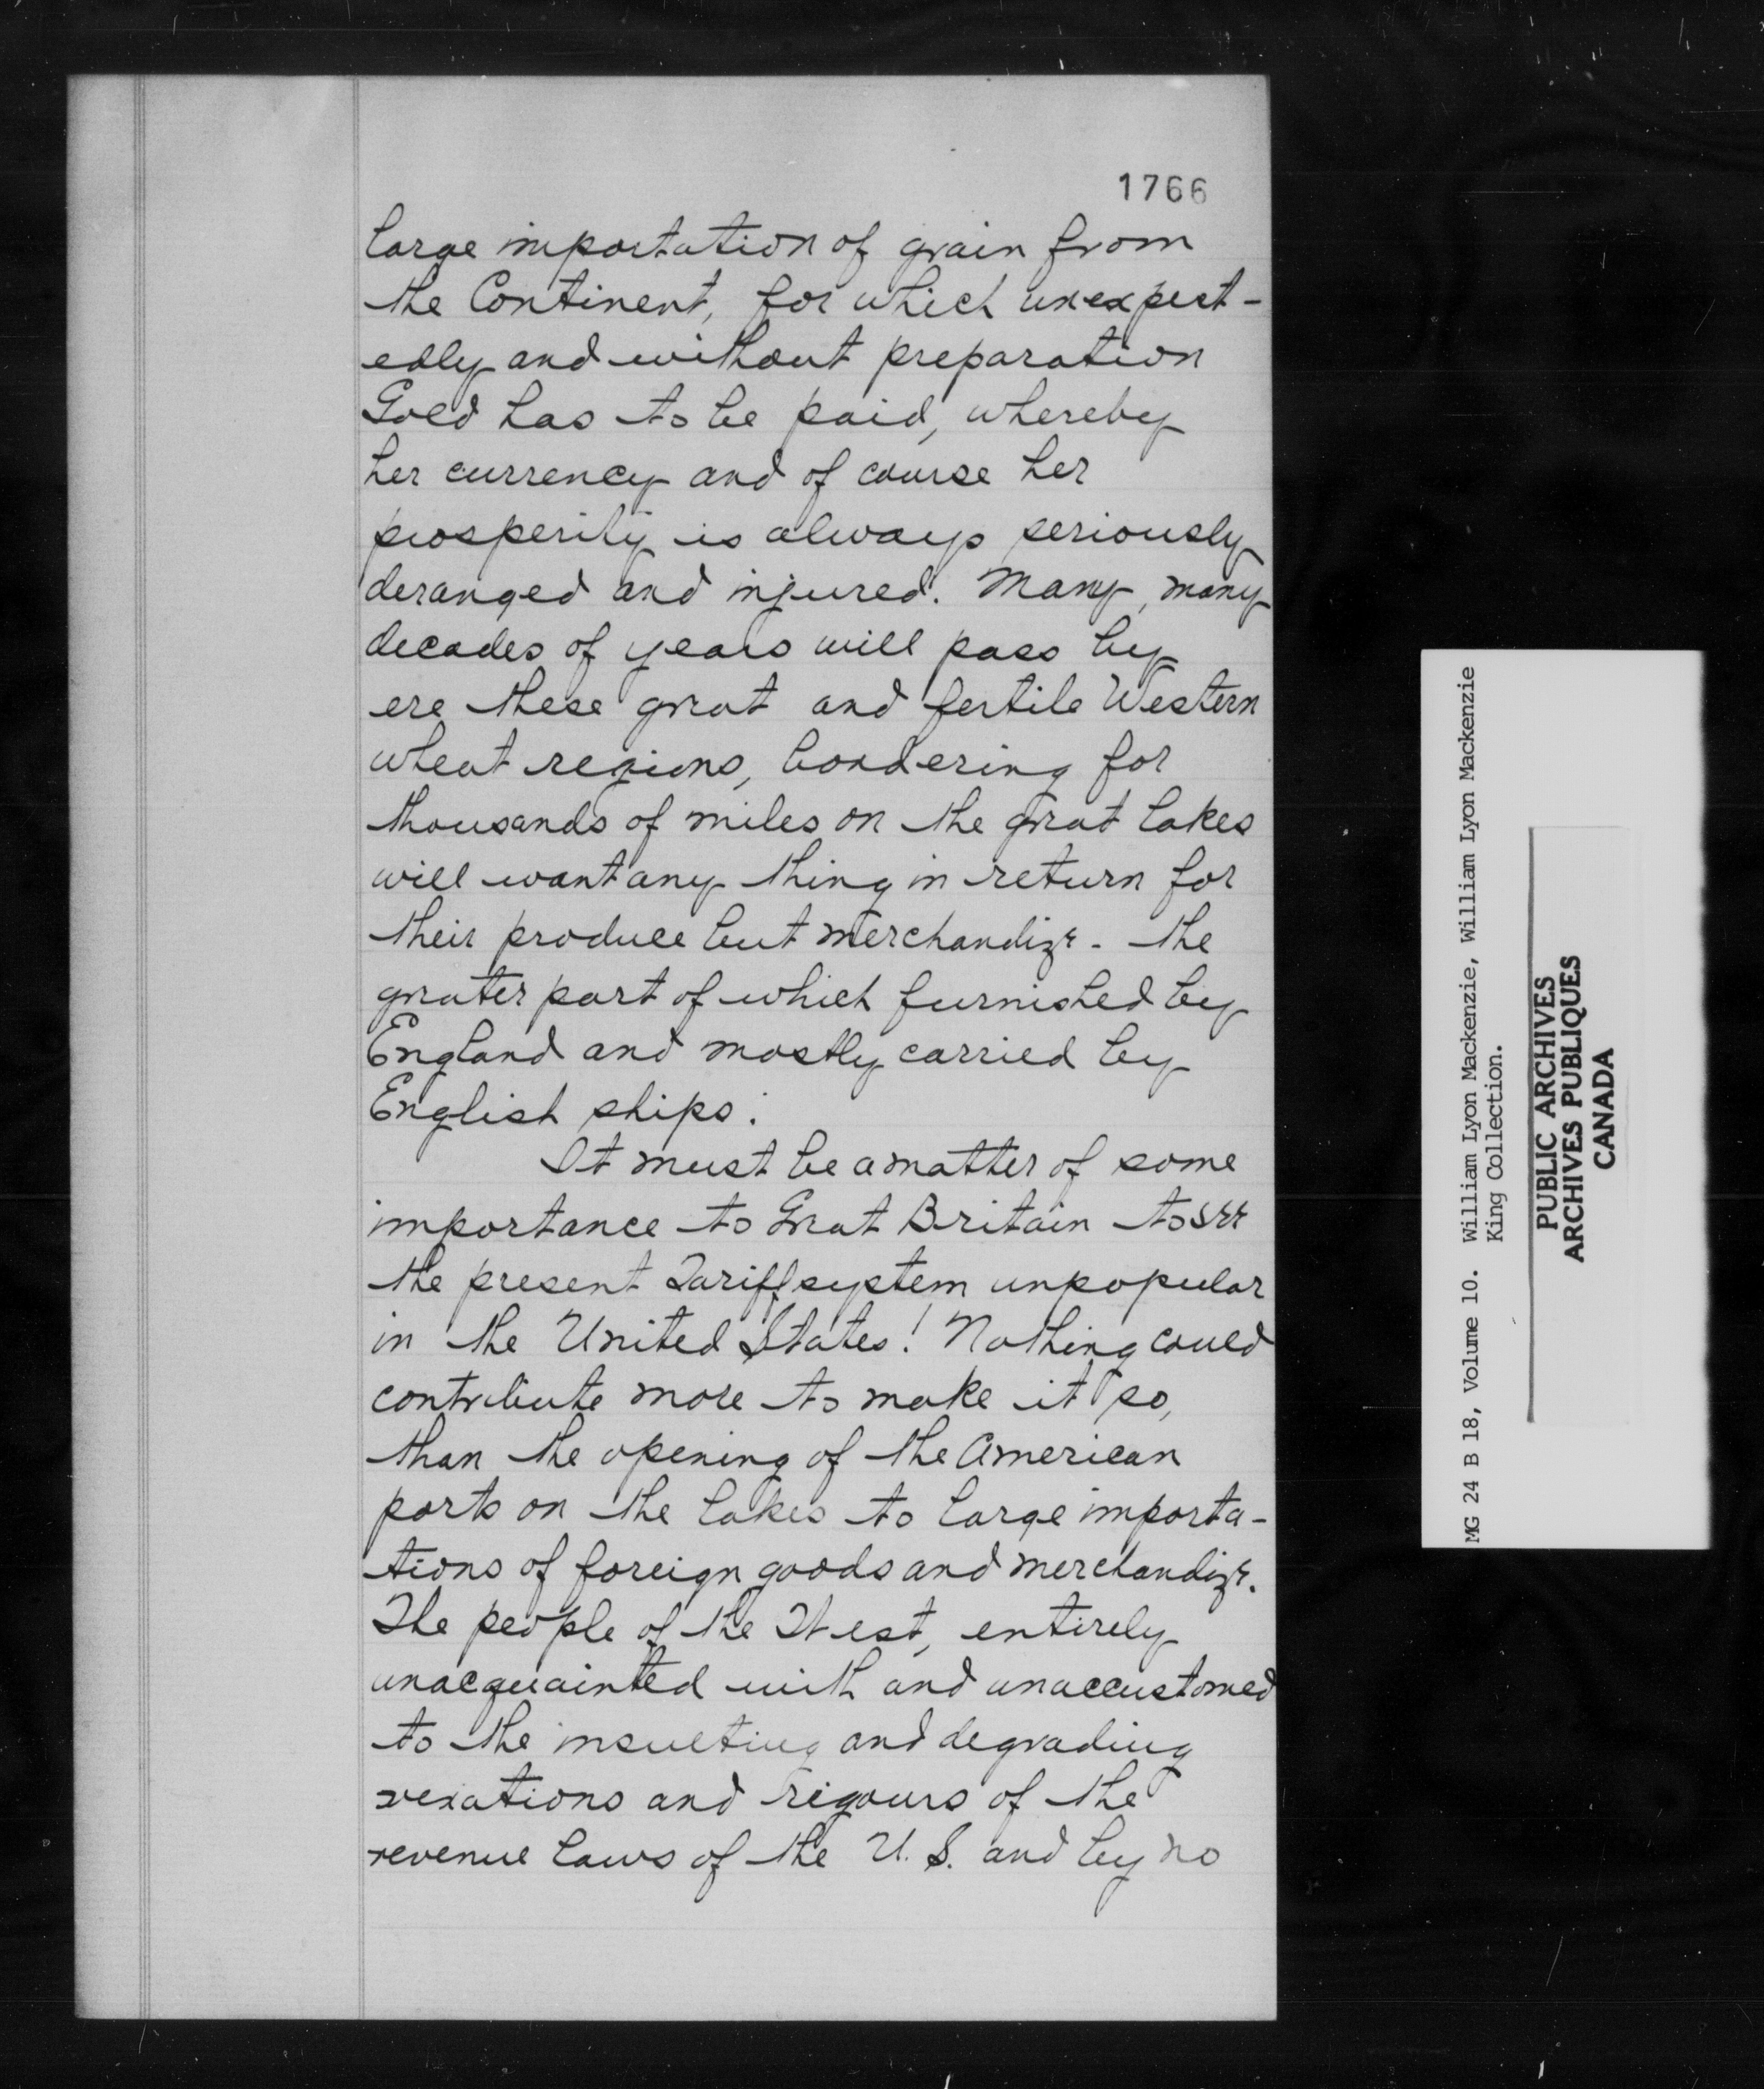 1766
large importation of grain from
the Continent, for which unexpect-
edly and without preparation
Gold has to be paid, whereby
her currency and of course her
prosperity is always seriously
deranged and injured. Many, many
decades of years will pass by
ere these great and fertile Western
wheat regions, bordering for
thousands of miles on the great lakes
will want any thing in return for
their produce but merchandize - the
greater part of which furnished by
England and mostly carried by
English ships.
It must be a matter of some
importance to Great Britain to see
the present Tariff system unpopular
in the United States! Nothing could
contribute more to make it so,
than the opening of the American
ports on the lakes to large importa-
tions of foreign goods and merchandize.
The people of the West, entirely
unacquainted with and unaccustomed
to the insulting and degrading
vexations and rigours of the
revenue laws of the U.S. and by no
MG 24 B 18, Volume 10. William Lyon Mackenzie, William Lyon Mackenzie
King Collection.
PUBLIC ARCHIVES
ARCHIVES PUBLIQUES
CANADA